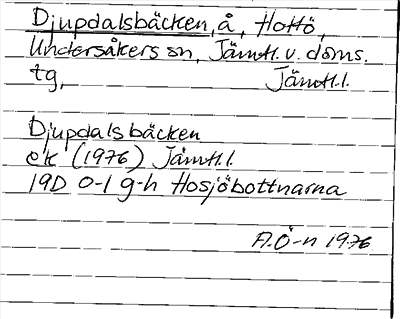 Djupdalsbäcken, å, Hottö,
Undersåkers sn, Jämtl. v. doms.
tg, Jämtl.l.
Djupdalsbäcken
ek (1976) Jämtl.l.
19D 0-1 g-h Hosjöbottnarna
A.Ö-n 1976